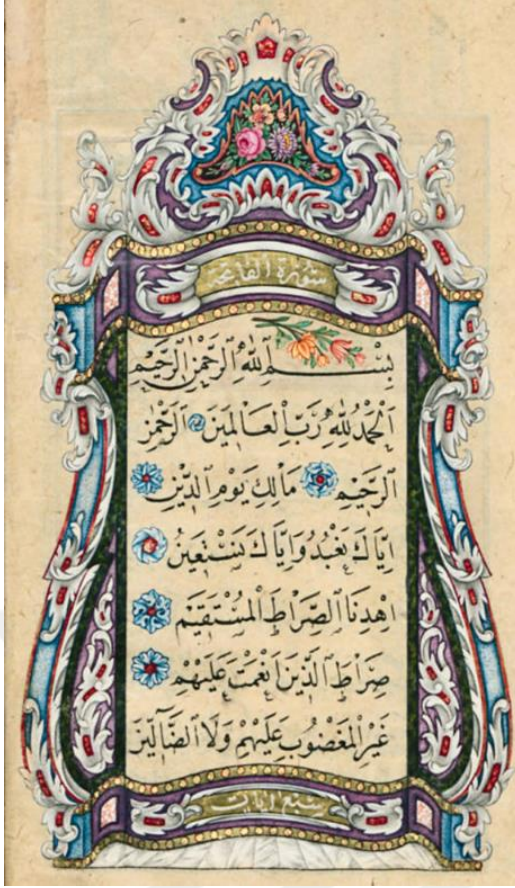 سورة الفاتحة
بِسْمِ اللهِ الرَّحْمٰنِ الرَّحِيْمِ
اَلْحَمْدُ لِلّٰهِ رَبِّ الْعَالَمِيْنَ الرَّحْمٰنِ
الرَّحِيْمِ مَالِكِ يَوْمِ الدِّيْنِ
اِيَّاكَ نَعْبُدُ وَاِيَّاكَ نَسْتَعِيْنُ
اِهْدِنَا الصِّرَاطَ الْمُسْتَقِيْمَ
صِرَاطَ الَّذِيْنَ اَنْعَمْتَ عَلَيْهِمْ
غَيْرِ الْمَغْضُوبِ عَلَيْهِمْ وَلَا الضَّٓالِّيْنَ
سبع ايات